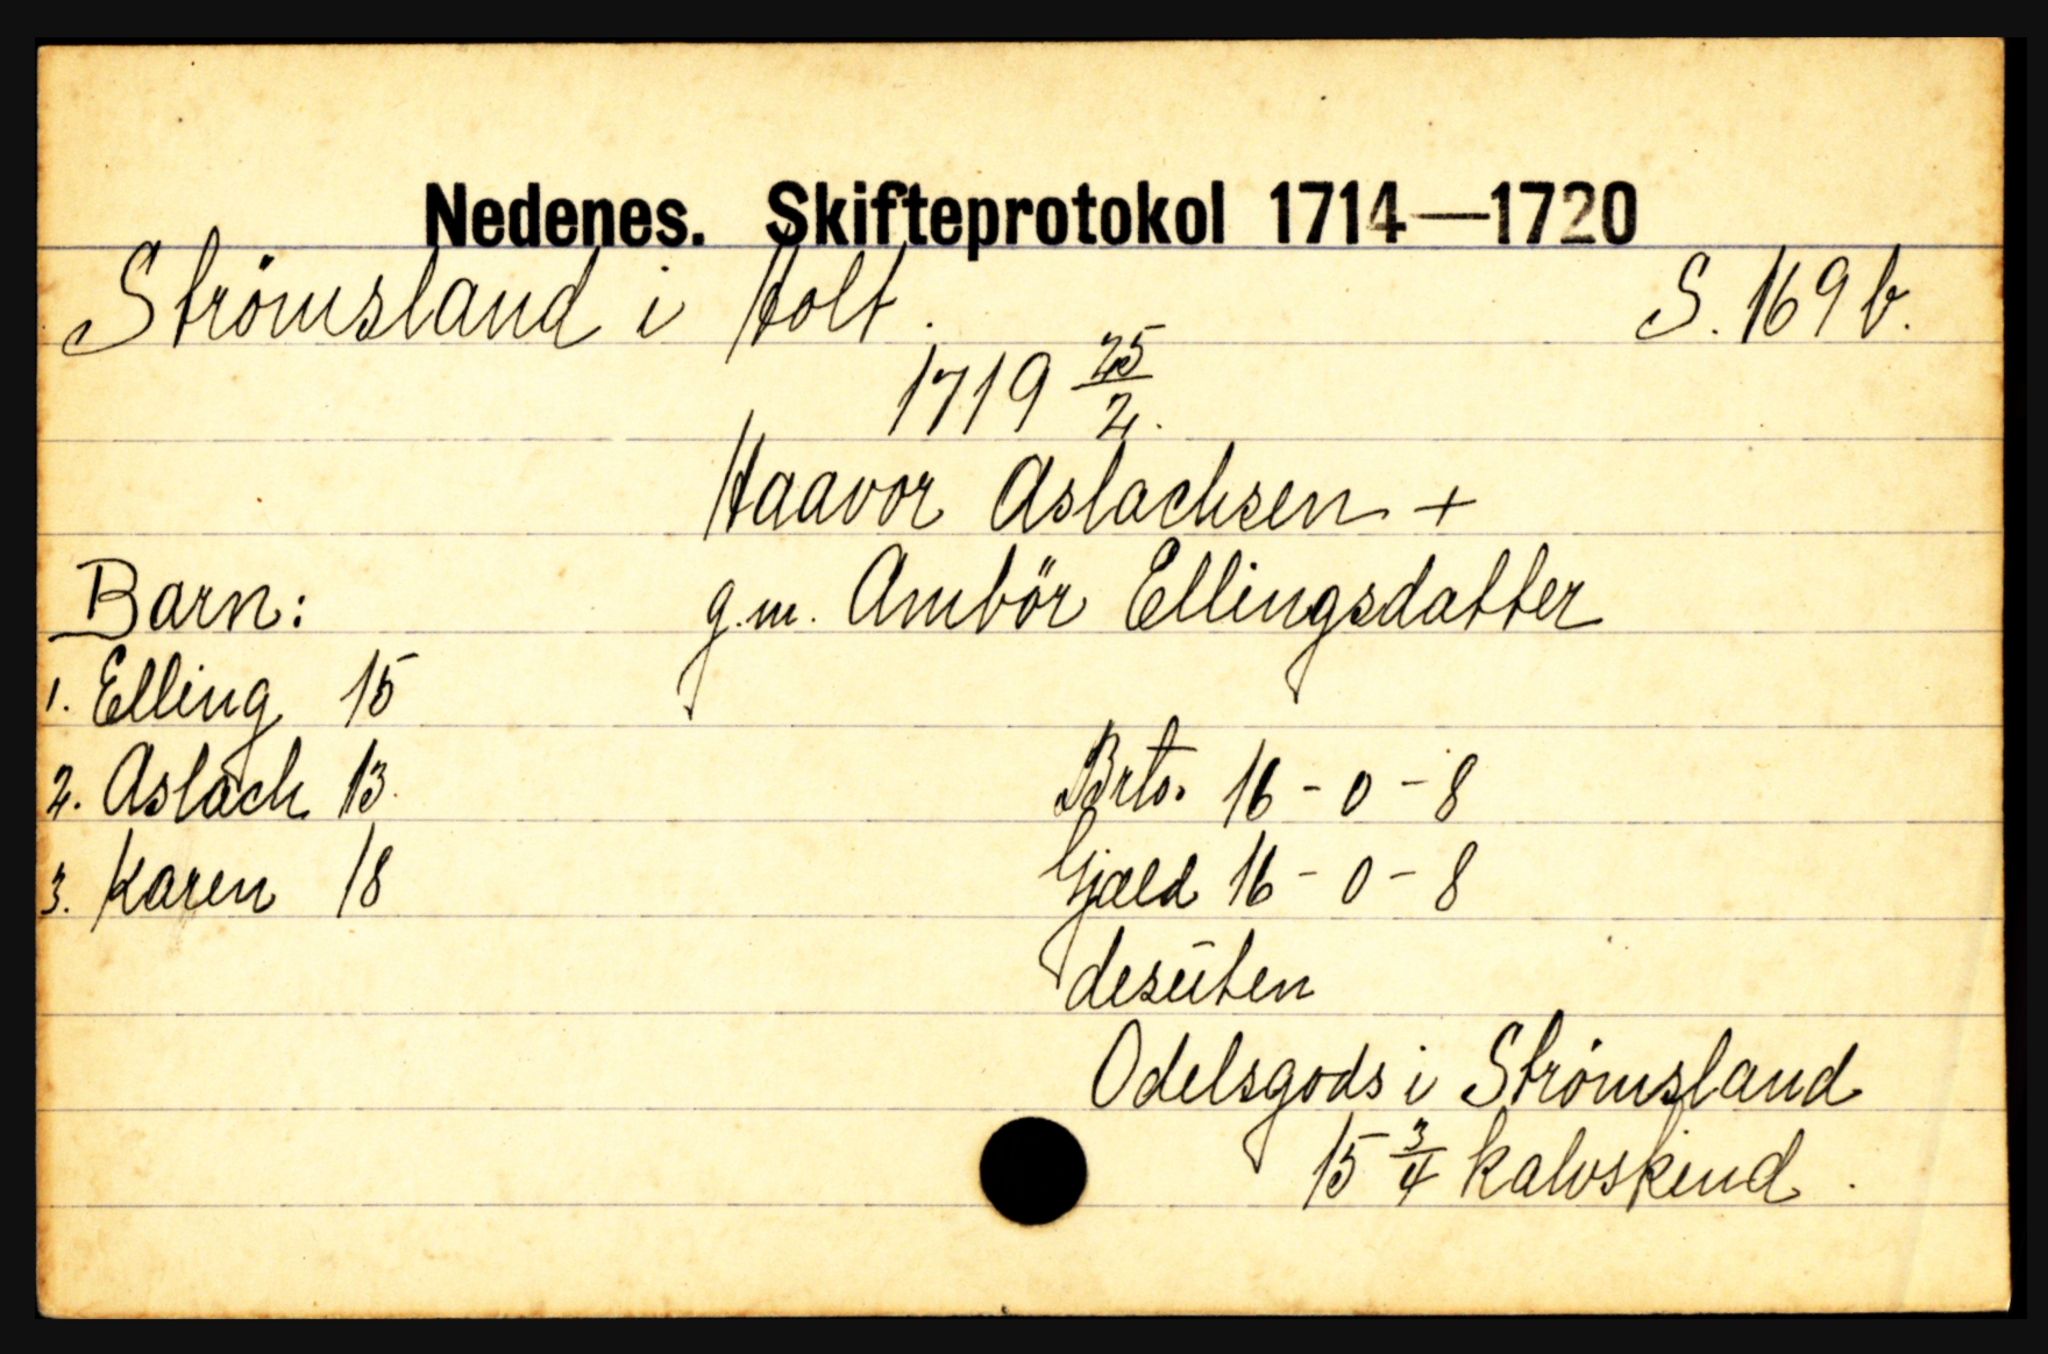 Nedenes. Skifteprotokol 1714—1720
Strömsland i Holt. S. 169 b.
1719 25/2.
Haavor Aslachsen +
g.m. Ambör Ellingsdatter
Barn:
1. Elling 15
2. Aslach 13.
3. Karen 18
Brto. 16 - 0 - 8
Gjæld 16 - 0 - 8
desūten
Odelsgods i Strömsland
15 3/4 kalvskind.